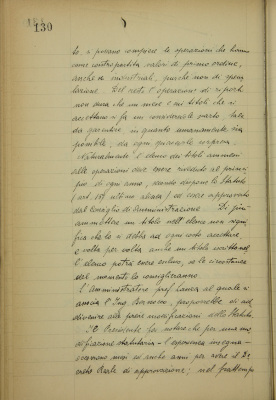 130
te, si possano compiere le operazioni che hanno
come contropartita valori di primo ordine,
anche se industriali, purchè non di specu
lazione. Del resto l'operazione di riporti
non dura che un mese e sui titoli che si
accettano si fa un considerevole scarto, tale
da garantire in quanto umanamente sia
possibile, da ogni spiacevole sorpresa.
Naturalmente l'elenco dei titoli ammessi
alle operazioni deve essere riveduto al princi
pio di ogni anno, secondo dispone lo Statuto
(art. ultimo alinea) ed essere approvato
dal Consiglio di Amministrazione. Di più
ammettere un titolo nell'elenco non signi
fica che lo si debba ad ogni costo accettare,
e volta per volta anche un titolo iscritto nel
l'elenco potrà essere escluso, se le circostanze
del momento lo consiglieranno.
L'Amministratore prof. al quale si
associa l'Ing. proporrebbe di ad
divenire alla modificazioni dello Statuto.
Il Presidente fa notare che per una mo
dificazione statutaria l'esperienza insegna
occorrono mesi ed anche anni per avere il De
creto Reale di approvazione; nel frattempo